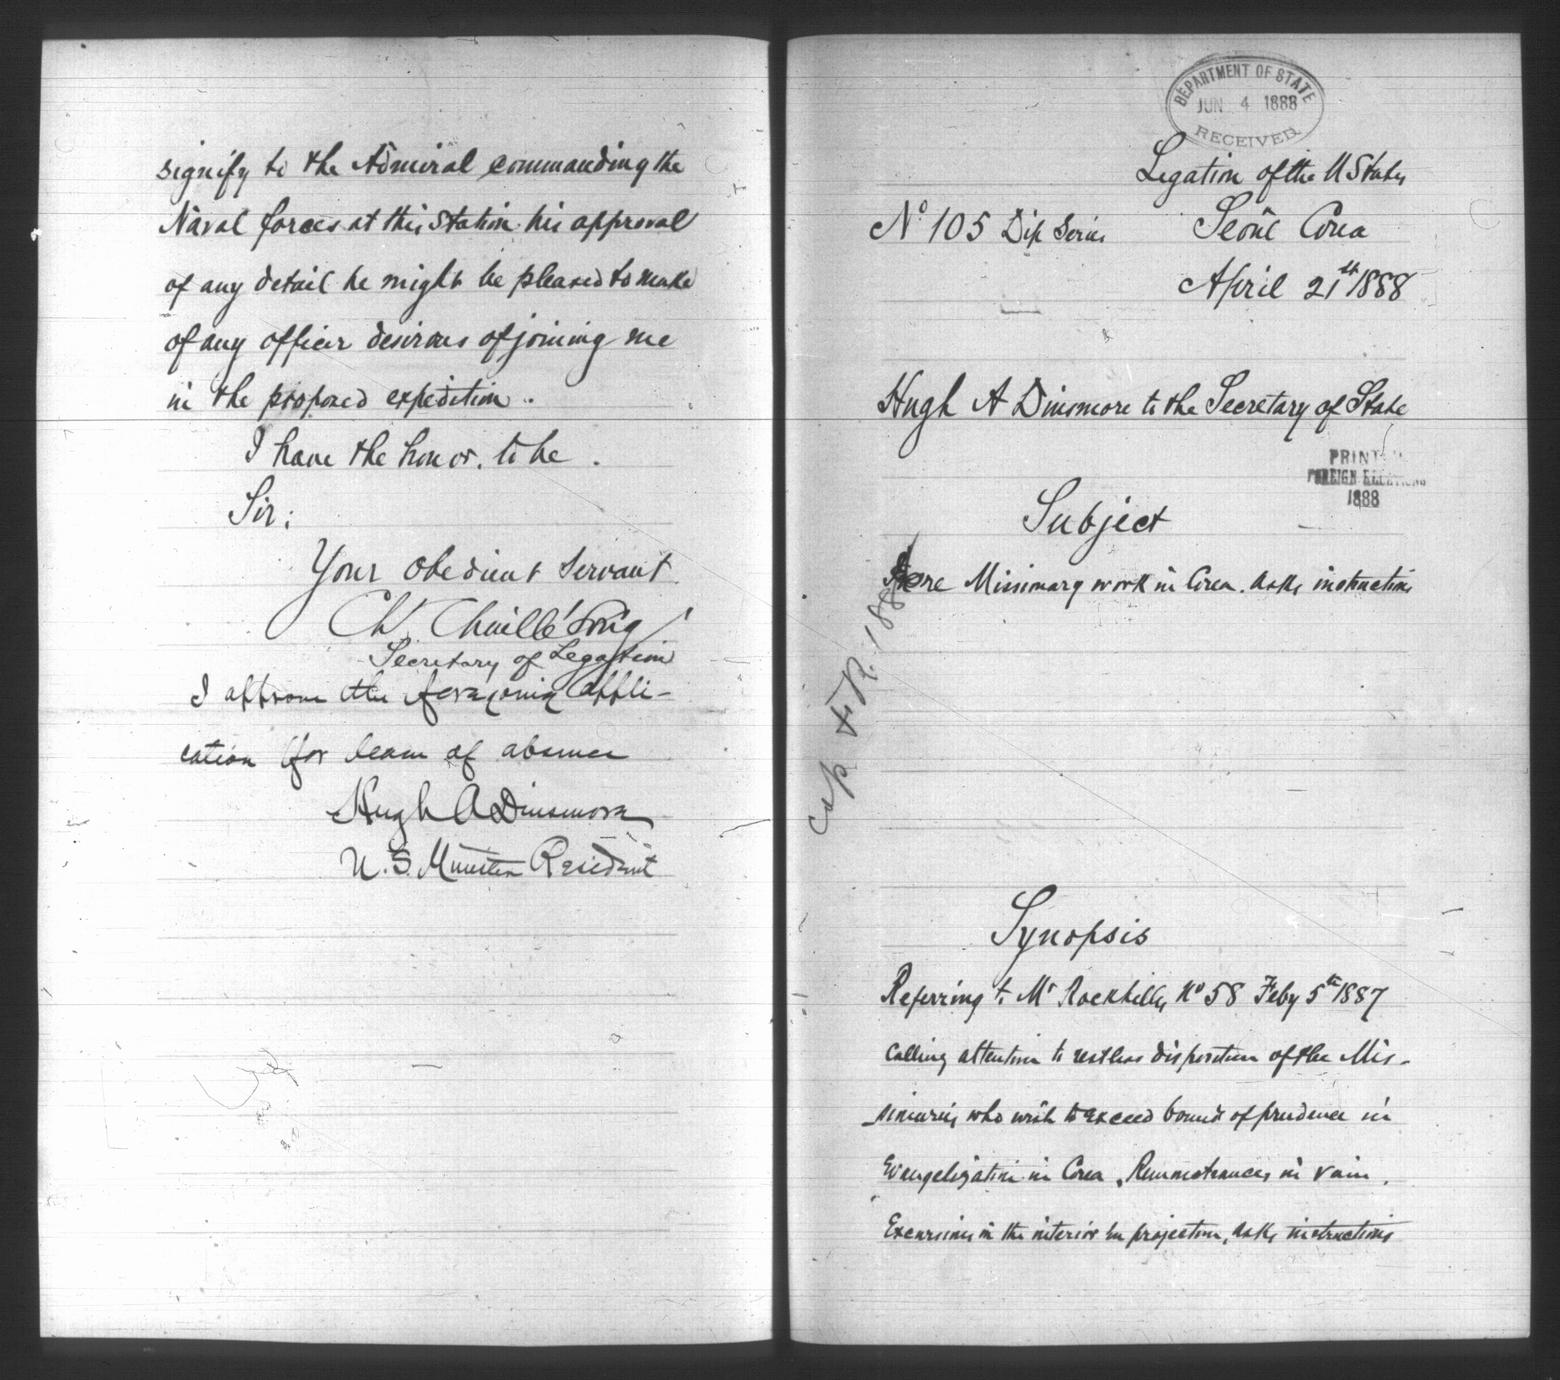 signify to the Admiral commanding the
Naval forces at this Station his approval
of any detail he might be pleased to make
of any officer desirous of joining me
in the proposed expedition.
I have the honor. to be.
Sir:
Your Obedient Servant
Ch. Chaillé Long
Secretary of Legation
I approve the foregoing appli-
cation for leave of absence
Hugh A Dinsmore
U. S. Minister Resident
DEPARTMENT OF STATE
JUN 4 1888
RECEIVED
Legation of the U States
No 105 Dip Series Seoul Corea
April 21st 1888
Hugh A Dinsmore to the Secretary of State
PRINTED
FOREIGN RELATIONS
1888
Subject
Missionary work in Corea. asks instructions
F.R. 188
Synopsis
Referring to Mr Rockhills No 58 Feby 5th 1887
Calling attention to restless disposition of the Mis-
sionaries who wish to exceed bounds of prudence in
Evangelization in Corea. Remonstrances in vain.
Excursions in the interior in projection, asks instructions